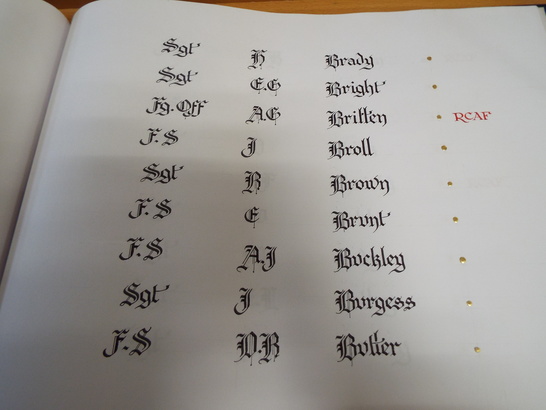 Sgt H Brady
Sgt E.G Bright
Fg.Off A.G Britten RCAF
F.S J Broll
Sgt R Brown
F.S E Brunt
F.S A.J Buckley
Sgt J Burgess
F.S D.R Butler